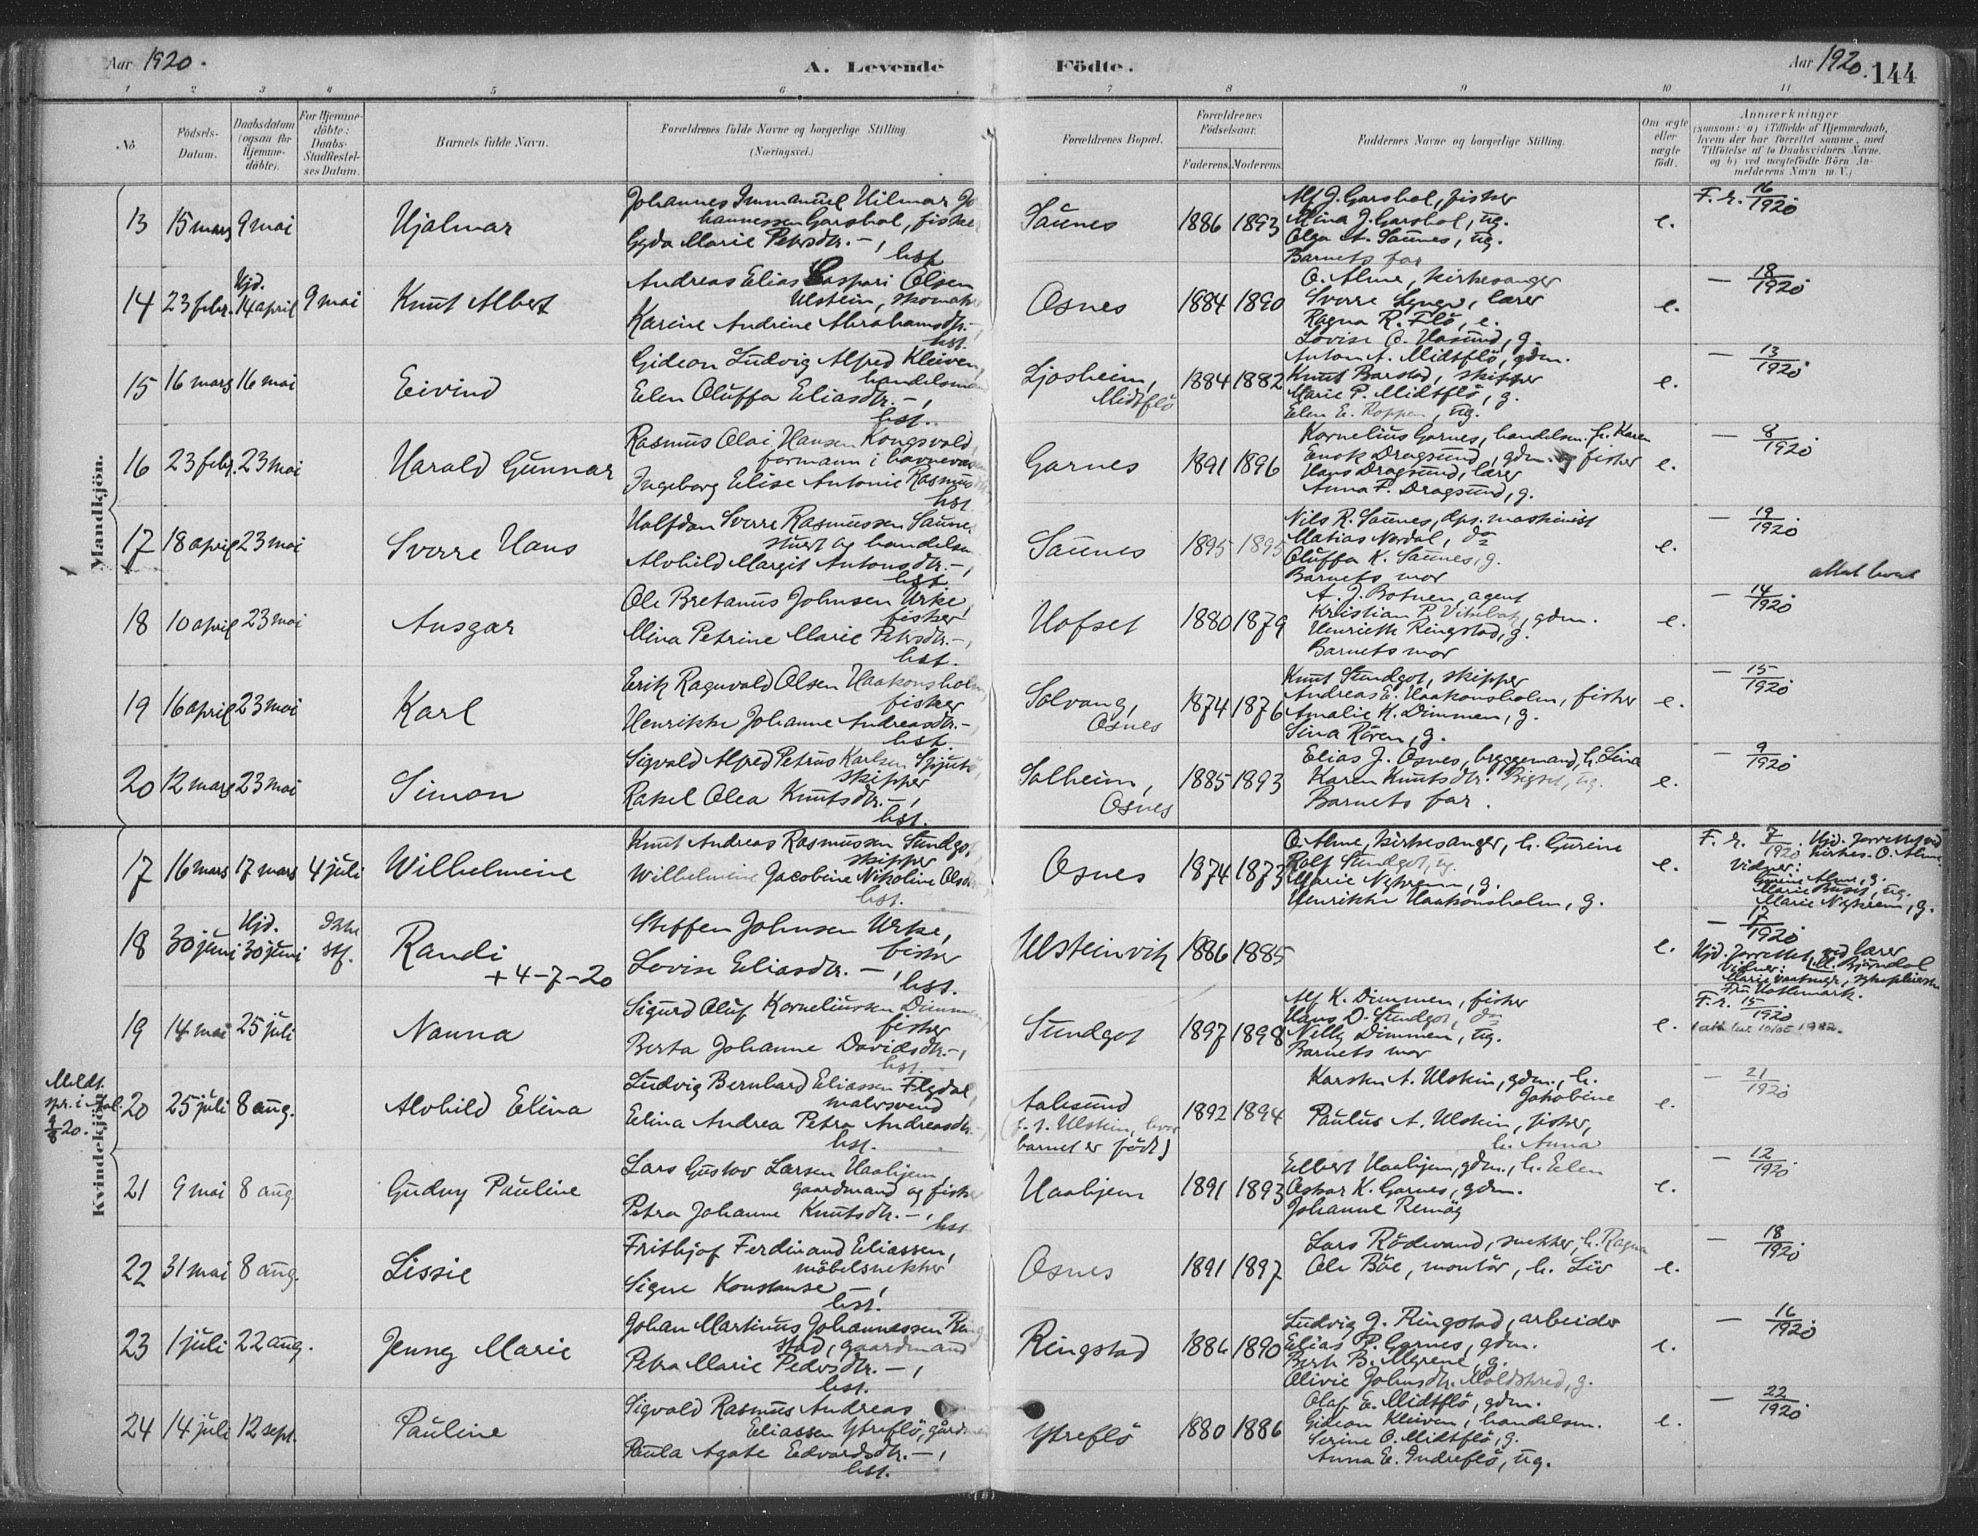 Aar 1920.
A. Levende Födte.
Aar 1920.
144
1 2 3 4 5 6 7 8 9 10 11
No.
Födsels-Datum.
Daabsdatum (ogsaa for Hjemmedöbte).
For Hjemmedöbte: Daabs-Stadfæstelses Datum.
Barnets fulde Navn.
Forældrenes fulde Navne og borgerlige Stilling.
(Næringsvei.)
Forældrenes Bopæl.
Forældrenes Födselsaar.
Faderens. Moderens.
Faddernes Navne og borgerlige Stilling.
Om ægte eller uægte födt.
Anmærkninger
(saasom: a) i Tilfælde af Hjemmedaab, hvem der har forrettet samme, med Tilföielse af to Daabsvidners Navne, og b) ved uægtefödte Börn Anmelderens Navn m. V.)
Mandkjön.
13 15 mars 9 mai Hjalmar
Johannes Immanuel Hilmar Johannessen Garshol, fisker
Gyda Marie Petersdtr. —, hst.
Saunes 1886 1893
Alf J. Garshol, fisker
Mina J. Garshol, ug.
Olga A. Saunes, ug.
Barnets far
e. F. r. 16/1920.
14 23 febr. Hjd. 14 april 9 mai Knut Albert
Andreas Elias Caspari Olsen
Ulstein, skomaker
Karine Andrine Abrahamsdtr. —, hst.
Osnes 1884 1890
O. Alme, kirkesanger
Sverre Lynge, lærer
Ragna R. Flø, e.
Lovise O. Hasund, g.
e. — 18/1920.
15 16 mars 16 mai Eivind
Gideon Ludvig Alfred Kleiven,
handelsmann
Elen Oluffa Eliasdtr. —, hst.
Ljosheim, Midtflö 1884 1882
Anton A. Midtflö, gdm.
Knut Barstad, skipper
Marie P. Midtflö, g.
Elen E. Roppen, ug.
e. — 13/1920.
16 23 febr. 23 mai Harald Gunnar
Rasmus Olai Hansen Kongsvold,
formann i havnevæsen
Ingeborg Elise Antonie Rasmusdtr. hst.
Garnes 1891 1896
Kornelius Garnes, handelsm. h. Karen
Enok Dragsund, gdm. og fisker
Hans Dragsund, lærer
Anna F. Dragsund, g.
e. — 8/1920.
17 18 april 23 mai Sverre Hans
Halfdan Sverre Rasmussen Saunes
stuert og handelsm.
Alvhild Margit Antonsdtr. —, hst.
Saunes 1895 1895
Nils R. Saunes, dps. maskinist
Matias Nordal, do
Oluffa K. Saunes, g.
Barnets mor
e. — 19/1920.
18 10 april 23 mai Ansgar
Ole Bretanus Johnsen Urke,
fisker
Mina Petrine Marie Petersdtr. —, hst.
Hofset 1880 1879
A. J. Botnen, agent
Kristian P. gdm.
Henriette Ringstad, g.
Barnets mor
e. — 14/1920.
19 16 april 23 mai Karl
Erik Ragnvald Olsen Haakonsholm,
fisker
Henrikke Johanne Andreasdtr. —, hst.
Solvang, Osnes 1874 1876
Knut Sundgot, skipper
Andreas E. Haakonsholm, fisker
Amalie K. Dimmen, g.
Sina Rören, g.
e. — 15/1920.
20 12 mars 23 mai Simon
Sigvald Alfred Petrus Karlsen
skipper
Rakel Olea Knutsdtr. —, hst.
Solheim, Osnes 1885 1893
Elias J. Osnes, byggemand, h. Lina
Karen Knutsdtr. Bigset, ug.
Barnets far.
e. — 9/1920.
Kvindekjön.
17 16 mars 17 mars 4 juli Wilhelmine
Knut Andreas Rasmussen Sundgot,
skipper
Wilhelmine Jacobine Nikoline Olsdtr. hst.
Osnes 1874 1873
O. Alme, kirkesanger, h. Gurine
Rolf Sundgot, ug.
Marie Nykrem, g.
Henrikke Haakonsholm, g.
e. F. r. 7/1920. Hjd. forrettet ved kirkes. O. Alme
Vidner:
Gurine Alme, g.
Marie Buset, ug.
Marie Nykrem, g.
18 30 juni Hjd. 30 juni Ikke stf. Randi
+ 4-7-20
Steffen Johnsen Urke,
fisker
Lovise Eliasdtr. —, hst.
Ulsteinvik 1886 1885
e. — 17/1920.
Hjd. forrettet ved lærer
M. Bjørndal
Vidner:
Fru Hatlemark.
19 14 mai 25 juli Nanna
Sigurd Oluf Korneliussen Dimmen
fisker
Berta Johanne Davidsdtr. —, hst.
Sundgot 1897 1898
Alf K. Dimmen, fisker
Hans D. Sundgot, do
Nilly Dimmen, ug.
Barnets mor
e. F. r. 15/1920
Meldt. spr. i Aal. 9/8 20.
20 25 juli 8 aug. Alvhild Elina
Ludvig Bernhard Eliassen Flydal,
malersvend
Elina Andrea Petra Andreasdtr. —, hst.
Aalesund
(f. t. Ulstein, hvor
barnet er født)
1892 1894
Karsten A. Ulstein, gdm., h.
Jakobine
Paulus A. Ulstein, fisker,
h. Anna
e. — 21/1920
21 9 mai 8 aug Gudny Pauline
Lars Gustav Larsen Haahjem,
gaardmand og fisker
Petra Johanne Knutsdtr. —, hst.
Haahjem 1891 1893
Elbert Haahjem, gdm., h. Elen
Oskar K. Garnes, gdm.
Johanne Remöy
e. — 12/1920.
22 31 mai 8 aug. Lissie
Frithjof Ferdinand Eliassen,
möbelsnekker
Signe Konstanse —, hst.
Osnes 1891 1897
Lars Rödsvand, snekker, h. Ragna
Ole Böe, montör, h. Liv
e. — 18/1920.
23 1 juli 22 aug. Jenny Marie
Johan Martinus Johannessen Ringstad,
gaardmand
Petra Marie Pedersdtr. —, hst.
Ringstad 1886 1890
Ludvig J. Ringstad, arbeider
Elias P. Garnes, gdm.
Berte B. Myrene, g.
Olivie Johnsdtr. Moldskred, g.
e. — 16/1920
24 14 juli 12 sept. Pauline
Sigvald Rasmus Andreas
Eliassen Ytreflö, gårdm.
Paula Agate Edvardsdtr. —, hst.
Ytreflö 1880 1886
Olaf E. Midtflö, gdm.
Gideon Kleiven, handelsm.
Serine O. Midtflö, g.
Anna E. Indreflö, ug.
e. — 22/1920.